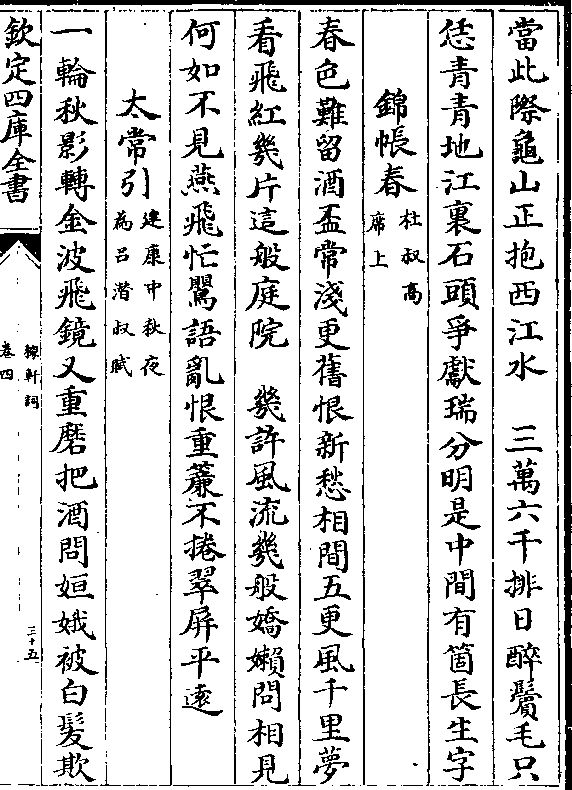 當此際龜山正抱西江水　三萬六千排日醉鬢毛只
恁青青地江裏石頭爭獻瑞分明是中間有箇長生字
錦帳春杜叔高
席上
春色難留酒盃常淺更舊恨新愁相間五更風千里夢
看飛紅幾片這般庭院　幾許風流幾般嬌嬾問相見
何如不見燕飛忙鶯語亂恨重簾不捲翠屏平遠
太常引建康中秋夜
為吕潛叔賦
一輪秋影轉金波飛鏡又重磨把酒問姮娥被白髪欺
欽定四庫全書
稼軒詞
卷四
三十五